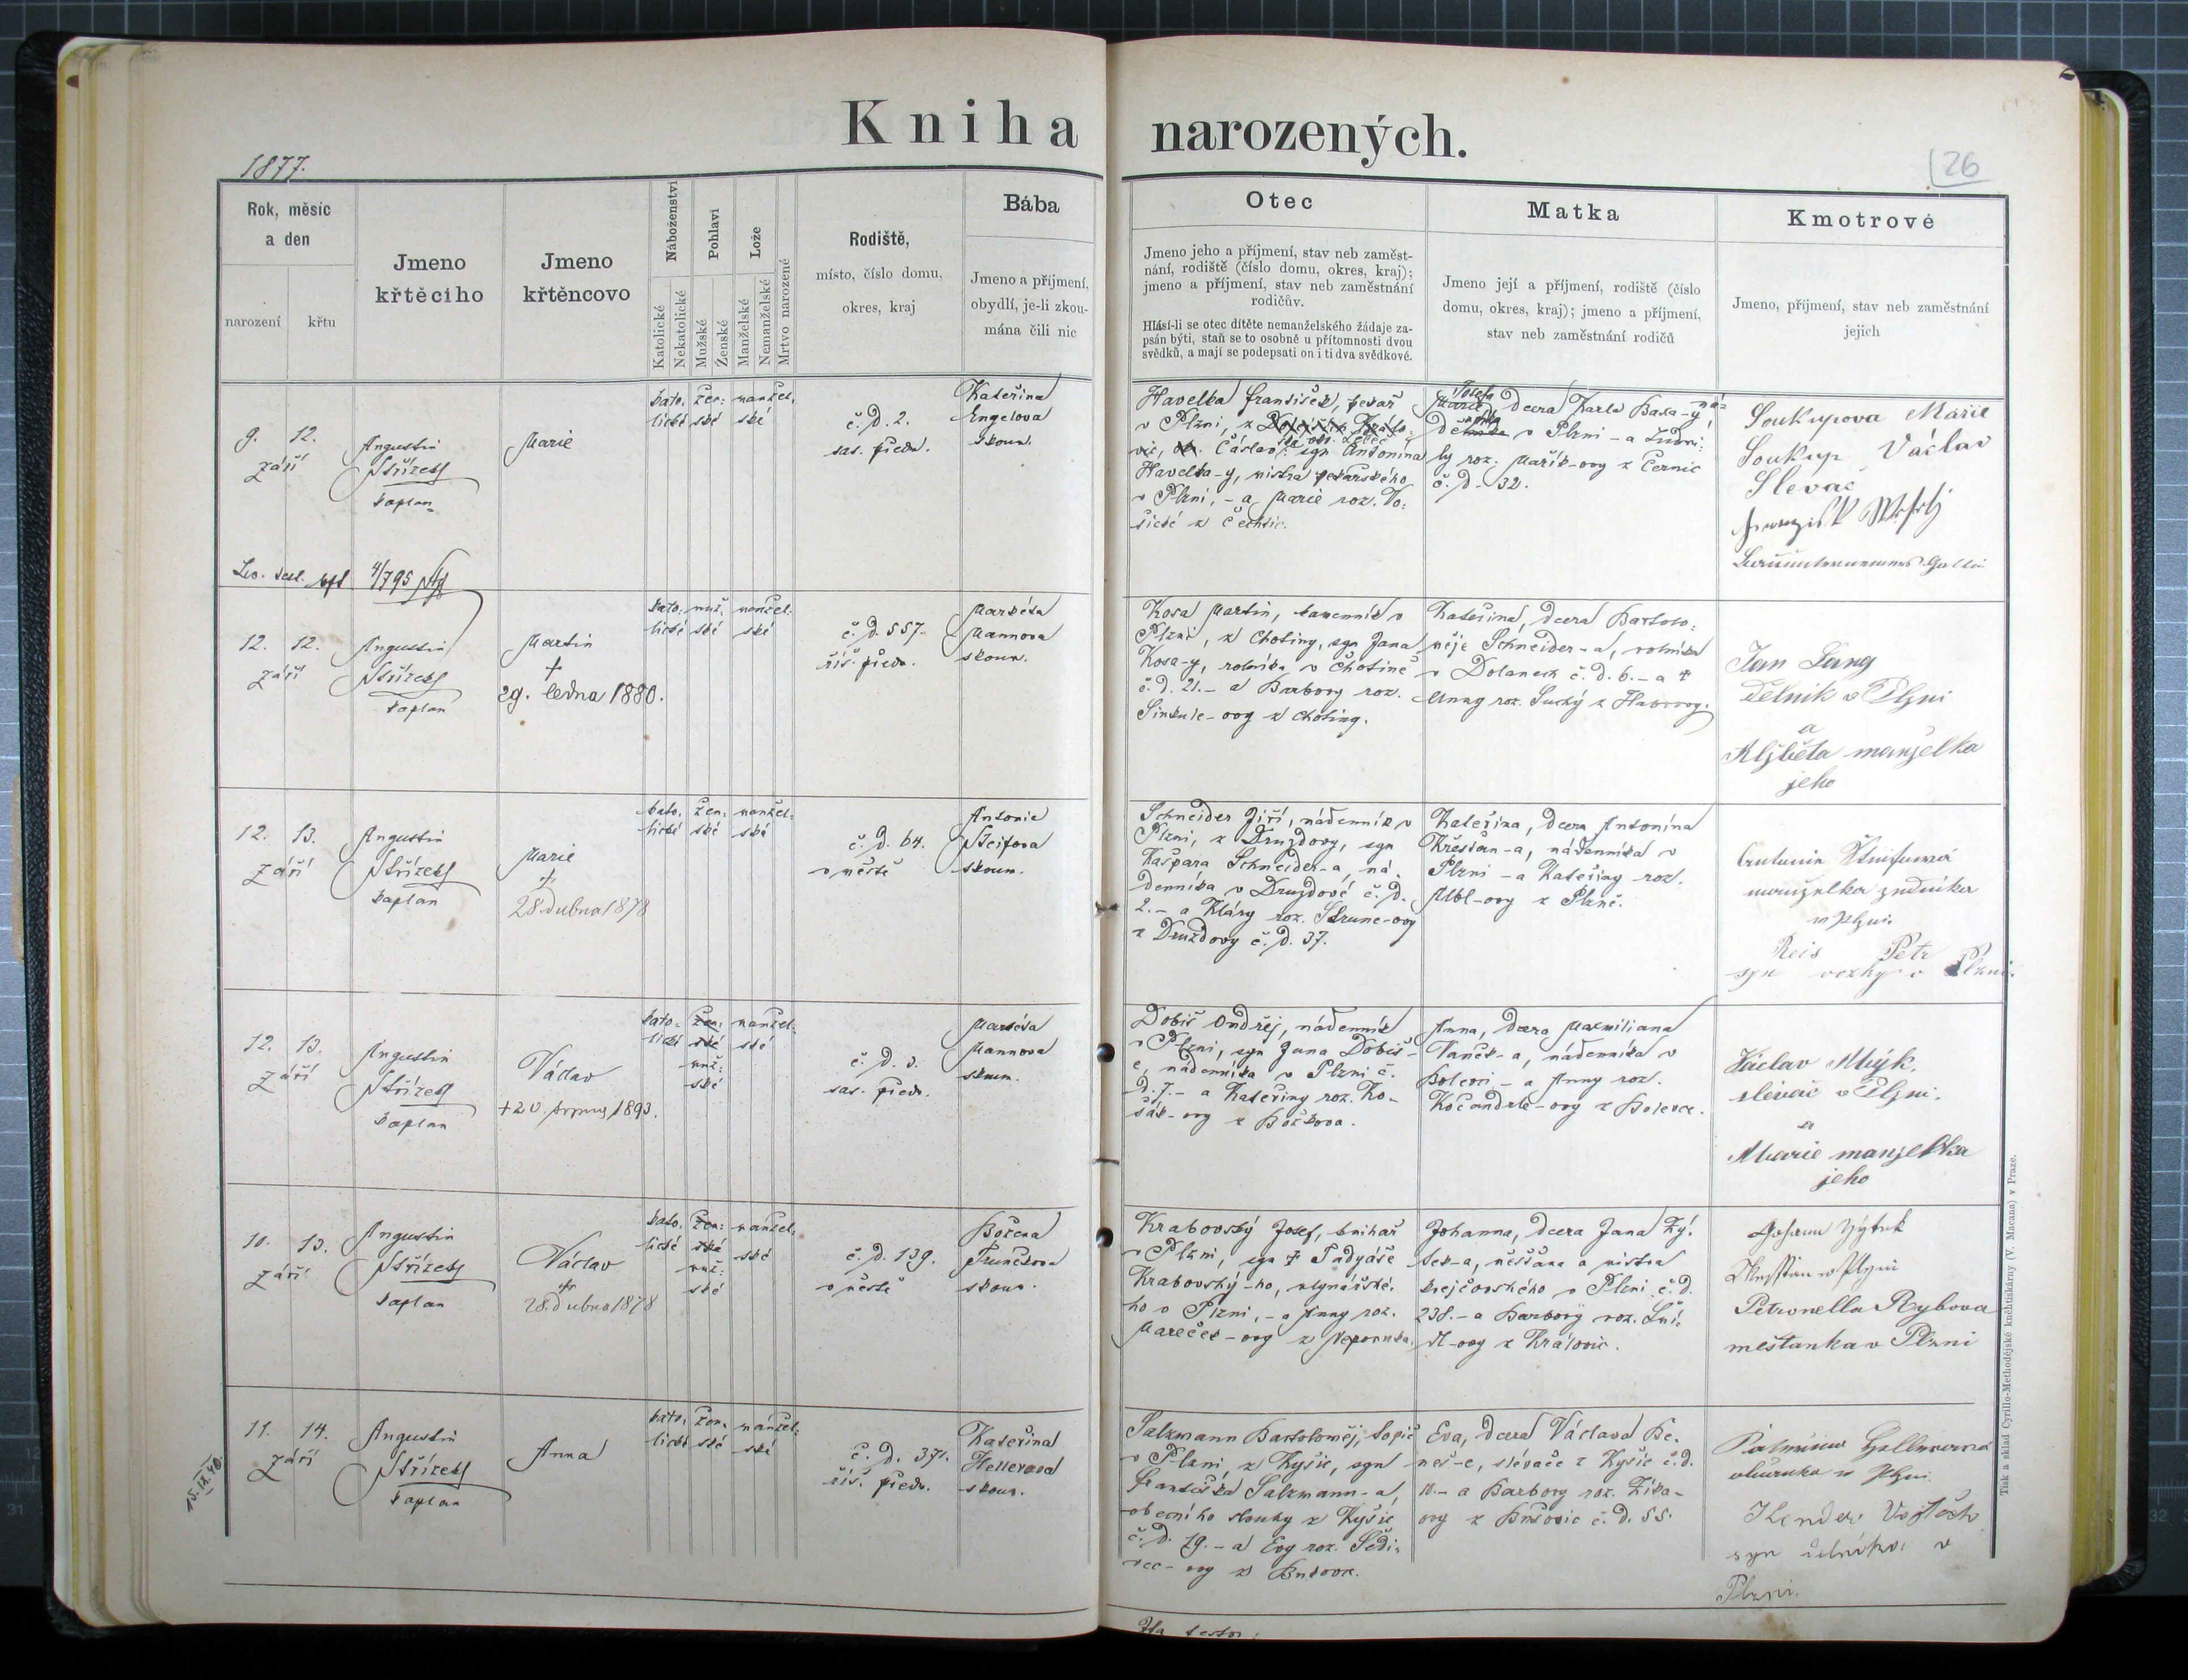 Kniha narozených.
1877.
26
Rok, měsíc
a den
narození
křtu
Jmeno
křtěcího
Jmeno
křtěncovo
Náboženství
Katolické
Nekatolické
Pohlaví
Mužské
Ženské
Lože
Manželské
Nemanželské
Mrtvo narozené
Rodiště,
místo, číslo domu,
okres, kraj
Bába
Jmeno a příjmení,
obydlí, je-li zkou-
mána čili nic
Otec
Jmeno jeho a příjmení, stav neb zaměst-
nání, rodiště (číslo domu, okres, kraj);
jmeno a příjmení, stav neb zaměstnání
rodičův.
Hlásí-li se otec dítěte nemanželského žádaje za-
psán býti, staň se to osobně u přítomnosti dvou
svědků, a mají se podepsati on i ti dva svědkové.
Matka
Jmeno její a příjmení, rodiště (číslo
domu, okres, kraj); jmeno a příjmení,
stav neb zaměstnání rodičů
Kmotrové
Jmeno, příjmení, stav neb zaměstnání
jejich
9. 12.
září
Augustin
Střízek
kaplan
Marie
kato- žen- manžel-
lické ské ské
č. d. 2.
sas. předm.
Kateřina
Engelova
zkoum.
Havelka František, pekař
v Plzni, z
Čáslav: syn Antonína
Havelka-y, mistra pekařského
v Plzni, - a Marie roz. Vo-
z Čechtic.
Josefa
Marie, dcera Karla
v Plzni - a Ludmi-
ly roz. Mařík-ovy z Černic
č. d. 32.
Soukupova Marie
Soukup Václav
Slevač
4/795
12. 12.
září
Augustin
Střízek
kaplan
Martin
+
29. ledna 1880.
kato- muž- manžel-
lické ské ské
č. d. 557.
říš. předm.
Markéta
Mannova
zkoum.
Kosa Martin, kamenník v
Plzni, z Chotiny, syn Jana
Kosa-y, rolníka v Chotině
č. d. 21. - a Barbory roz.
Sinkule-ovy z Chotiny.
Kateřina, dcera Bartolo-
měje Schneider-a, rolníka
v Dolanech č. d. 6. - a +
Anny roz. Suchý z
Jan Lang
dělník v Plzni
a
Alžběta manželka
jeho
12. 13.
září
Augustin
Střízek
kaplan
Marie
+
28. dubna 1878
kato- žen- manžel-
lické ské ské
č. d. 64.
v městě
Antonie
zkoum.
Schneider Jiří, nádenník v
Plzni, z Druzdovy, syn
Kašpara Schneider-a, ná-
denníka v Druzdové č. d.
2. - a Kláry roz. Strunc-ovy
z Druzdovy č. d. 37.
Kateřina, dcera Antonína
Křesťan-a, nádenníka v
Plzni - a Kateřiny roz.
z Plzně.
manželka zedníka
v Plzni
Reis Petr
syn v Plzni.
12. 13.
září
Augustin
Střízek
kaplan
Václav
+ 20. srpna 1893.
kato- žen- manžel-
lické ské ské
muž-
ské
č. d. 3.
sas. předm.
Markéta
Mannova
zkoum.
Dobiš Ondřej, nádenník
v Plzni, syn Jana Dobiš-
e, nádenníka v Plzni č.
d. 7. - a Kateřiny roz. Ko-
sák-ovy z Božkova.
Anna, dcera Maxmiliana
Vaněk-a, nádenníka v
Bolevci - a Anny roz.
Kočandrle-ovy z Bolevce.
Václav
slévač v Plzni.
a
Marie manželka
jeho
10. 13.
září
Augustin
Střízek
kaplan
Václav
+
28. dubna 1878
kato- žen- manžel-
lické ské ské
muž-
ské
č. d. 139.
v městě
Božena
Trunečkova
zkoum.
Krabovský Josef, knihař
v Plzni, syn + Tadyáše
Krabovský-ho, mlynářské-
ho v Plzni, - a Anny roz.
Mareček-ovy z Nepomuka.
Johanna, dcera Jana Zý-
tek-a, měšťana a mistra
krejčovského v Plzni č. d.
238. - a Barbory roz. Šní-
dl-ovy z Kralovic.
Johann Zýtek
Petronella Rybova
meštanka v Plzni
11. 14.
září
15. IX. 40.
Augustin
Střízek
kaplan
Anna
kato- žen- manžel-
lické ské ské
č. d. 371.
říš. předm.
Kateřina
Hellerova
zkoum.
Salzmann Bartoloměj, topič
v Plzni, z Kyšic, syn
Františka Salzmann-a,
obecního sluhy z Kyšic
č. d. 19. - a Evy roz. Šedi-
vec-ovy z
Eva, dcera Václava Be-
neš-e, slévače z Kyšic č. d.
10. - a Barbory roz. Zíka-
ovy z č. d. 55.
v Plzni
Vojtěch
syn v
Plzni.
Tisk a sklad Cyrillo-Methodějské knihtiskárny (V. Macana) v Praze.